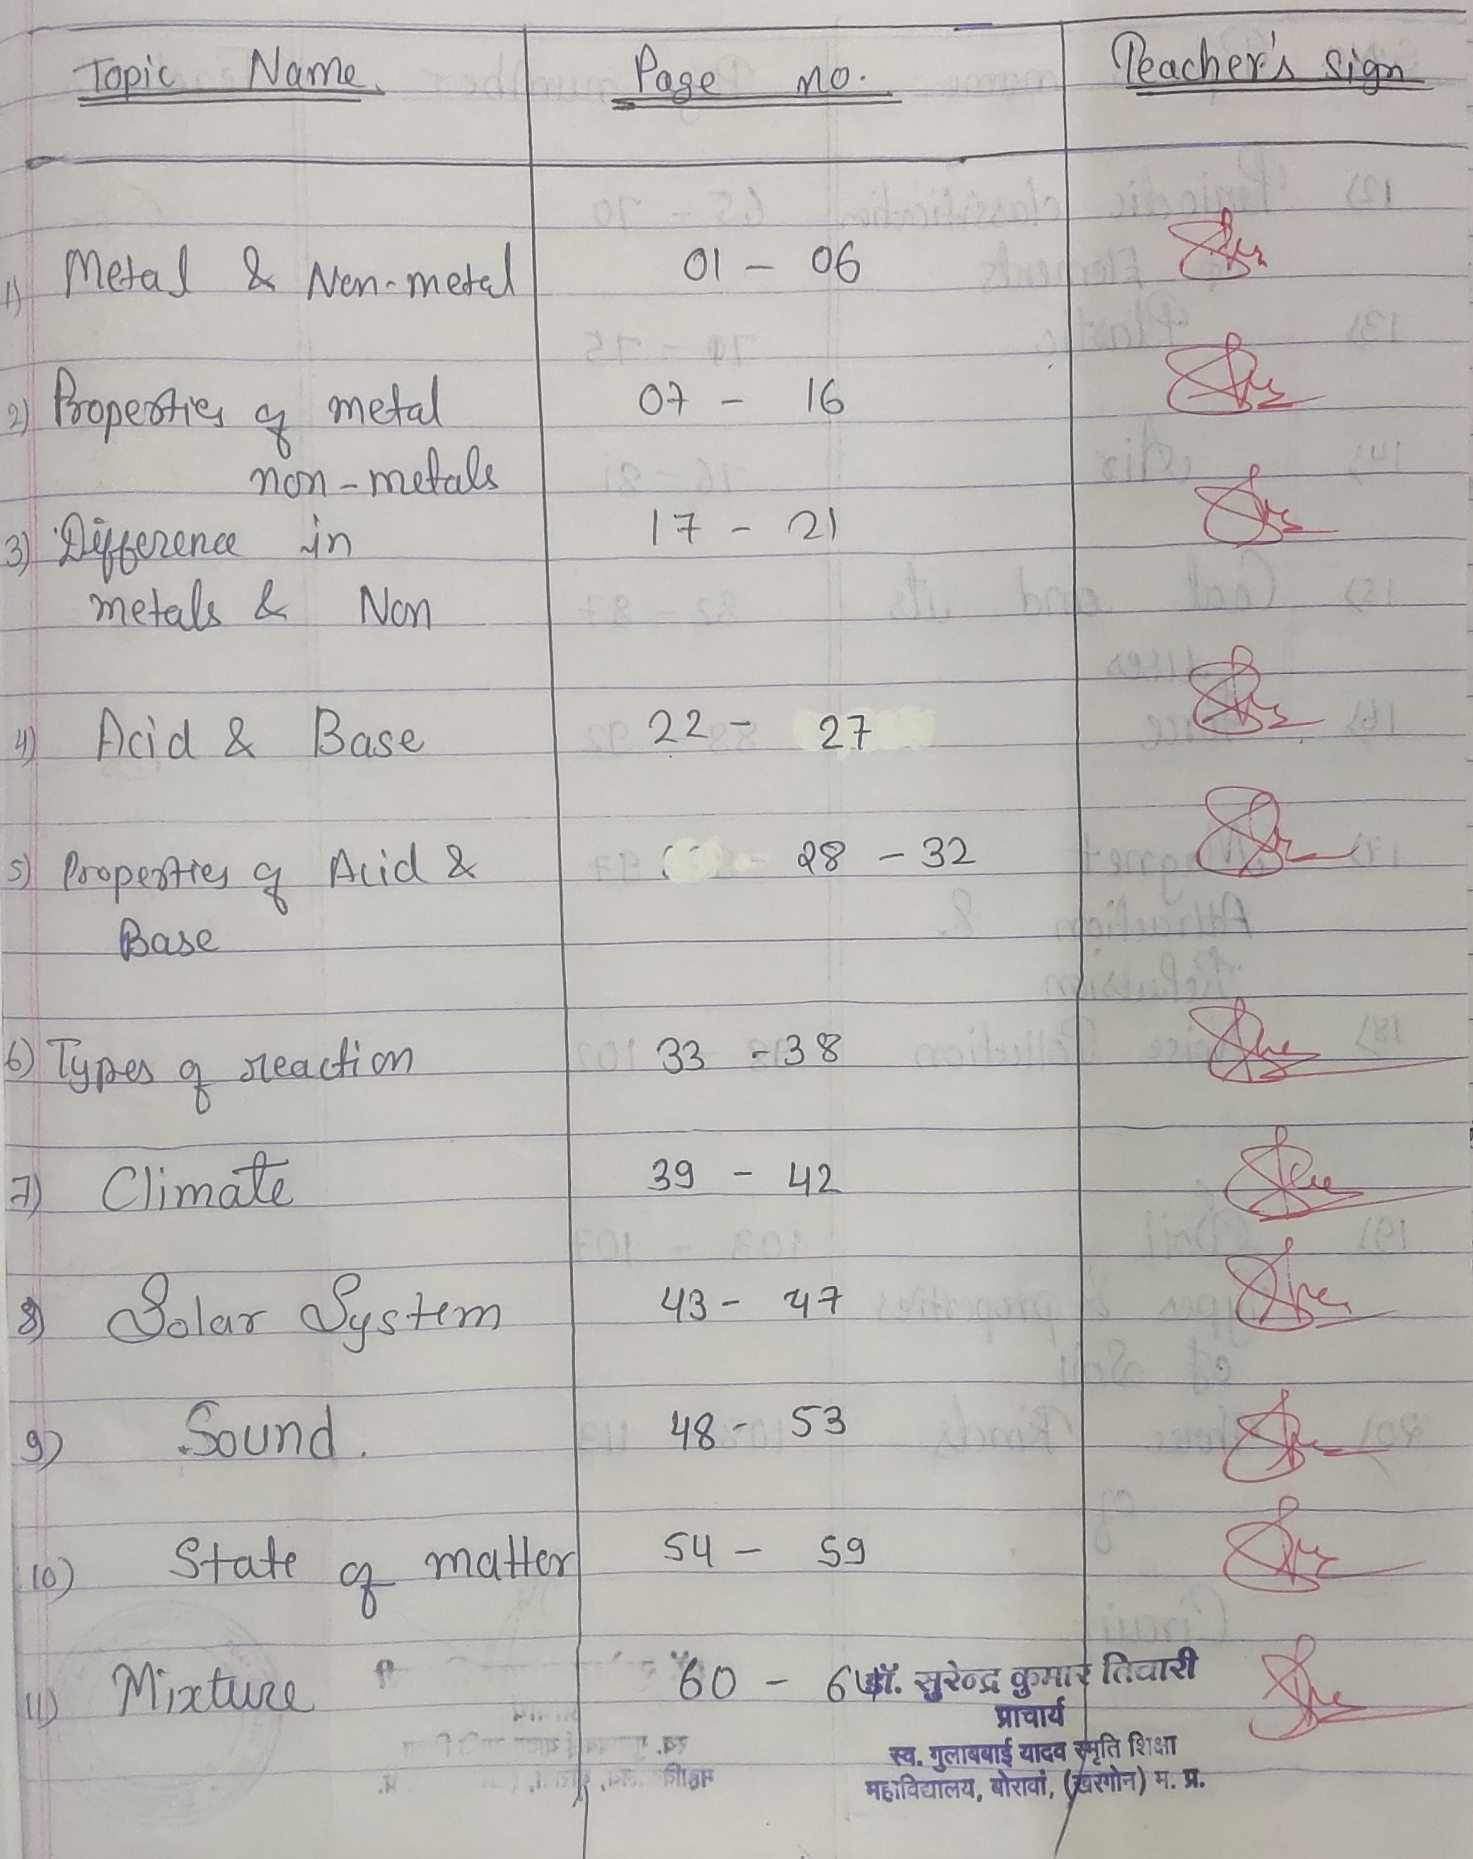 Topic Name Page no. Teacher's sign
1) Metal & Non-metal 01 - 06
2) Properties of metal 07 - 16
non-metals
3) Difference in 17 - 21
metals & Non
4) Acid & Base 22 - 27
5) Properties of Acid & 28 - 32
Base
6) Types of reaction 33 - 38
7) Climate 39 - 42
8) Solar System 43 - 47
9) Sound. 48 - 53
10) State of matter 54 - 59
11) Mixture 60 - 64 डॉ. सुरेन्द्र कुमार तिवारी
प्राचार्य
स्व. गुलाबबाई यादव स्मृति शिक्षा
महाविद्यालय, बोरावां, (खरगोन) म. प्र.